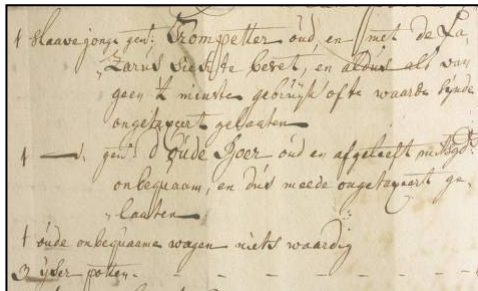 1 Slaave jonge gen:t Trompetter oud en met de La,
„Zarus siekte beset, en aldus als van
geen 't minste gebruyk ofte waarde synde
ongetaxeert gelaaten
1 — gen:t d' Oude Boer oud en afgeleeft mitsgrs
onbequaam, en dus meede ongetaxeert ge„
„laaten
1 oude onbequaame wagen niets waardig
3 yser potten - - - - - -